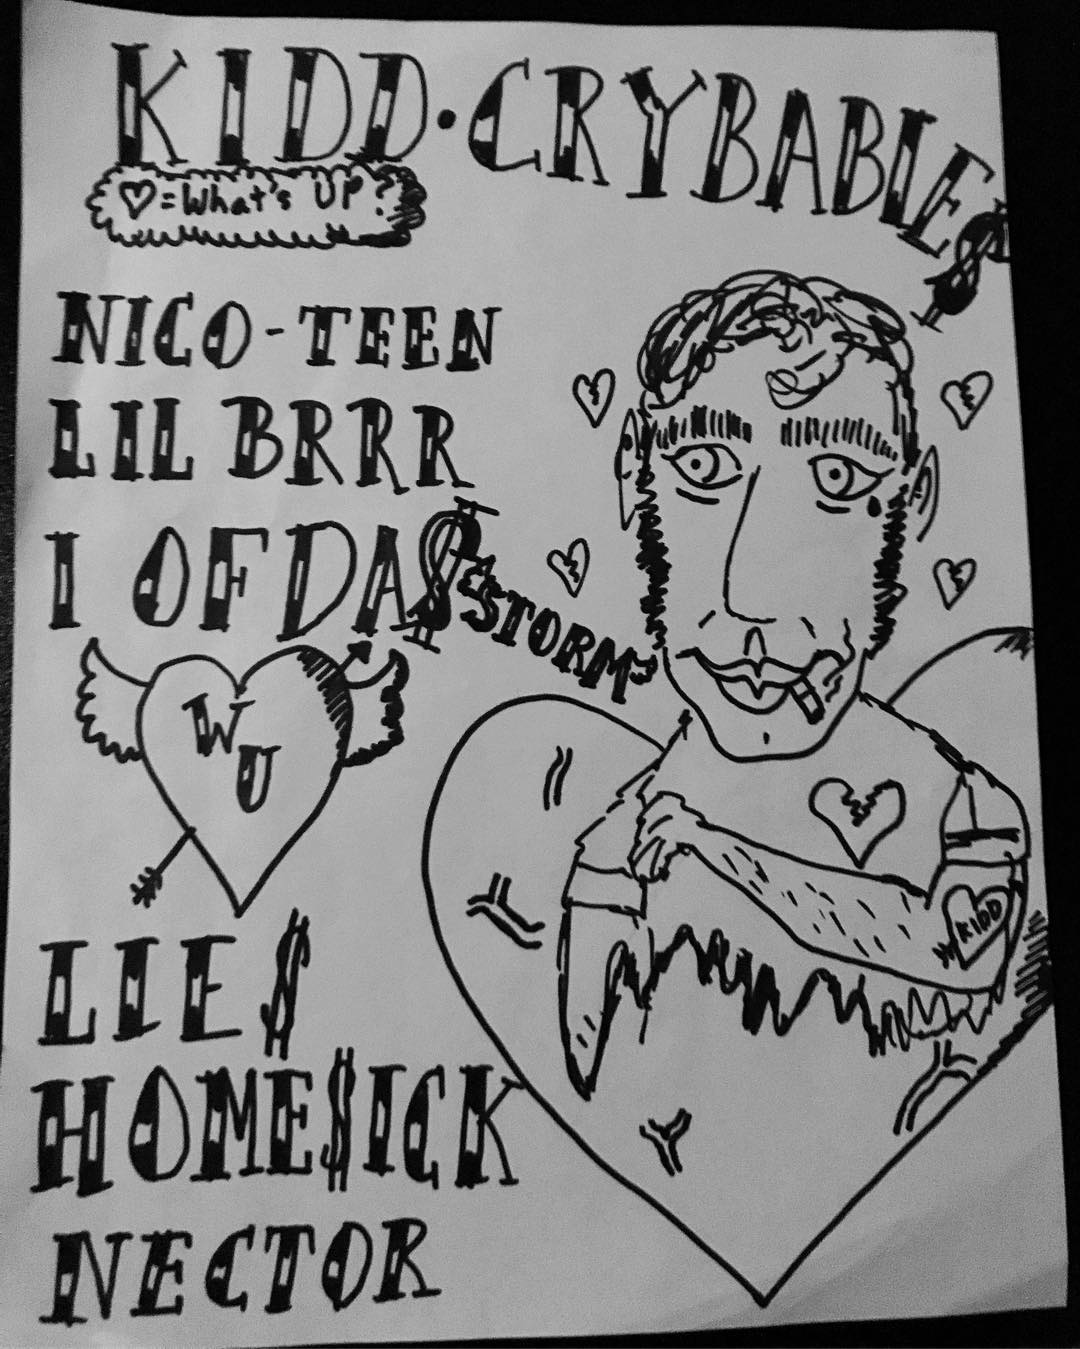 KIDD·CRYBABIE$
♡=What's UP?
NICO-TEEN
LIL BRRR
I OF DA $
$STORM$
W
U
LIE$
HOME$ICK
NECTOR
KIDD